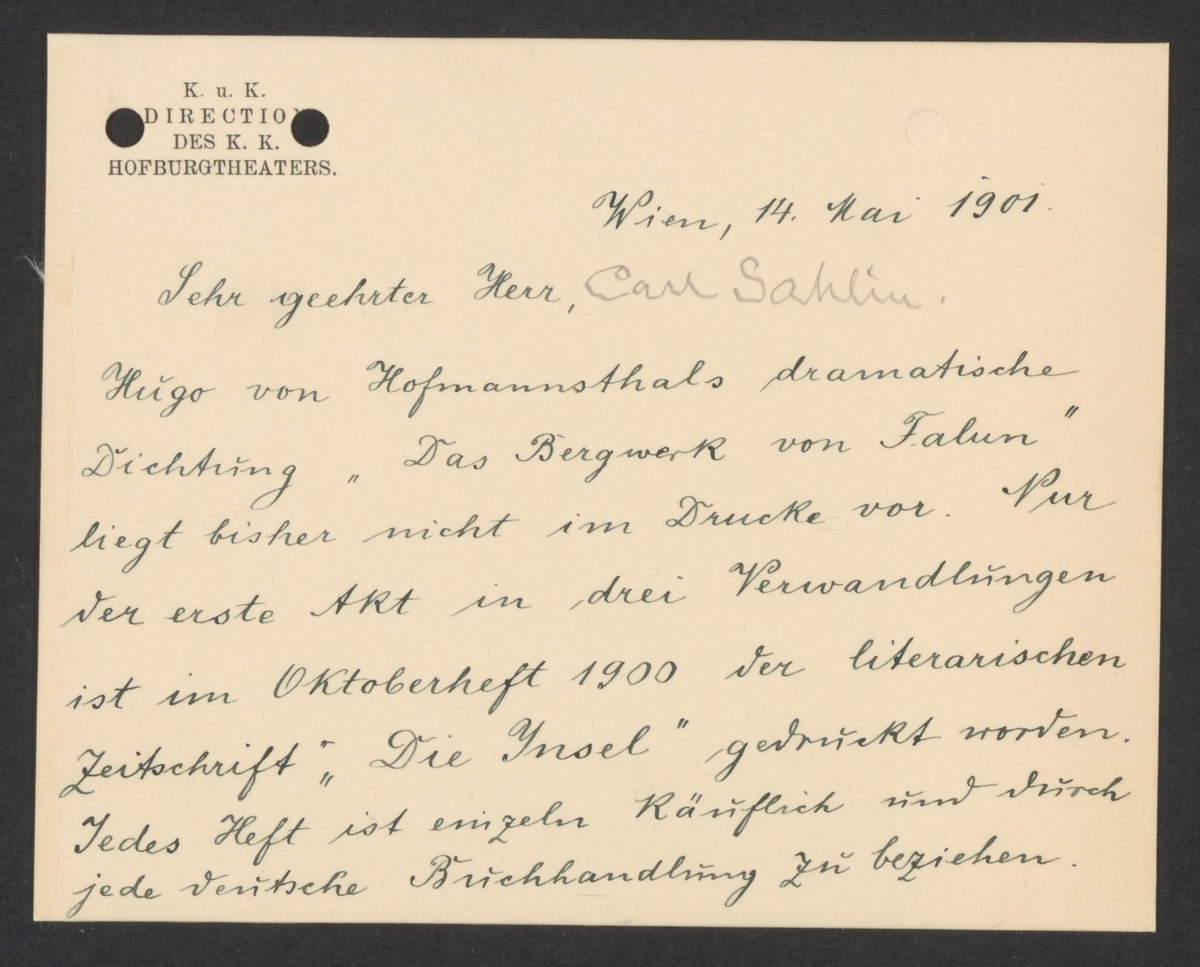 K. u. K.
DIRECTION
DES K. K.
HOFBURGTHEATERS.
Wien, 14. Mai 1901.
Sehr geehrter Herr, Carl Sahlin.
Hugo von Hofmannsthals dramatische
Dichtung „Das Bergwerk von Falun"
liegt bisher nicht im Drucke vor. Nur
der erste Akt in drei Verwandlungen
ist im Oktoberheft 1900 der literarischen
Zeitschrift „Die Insel" gedruckt worden.
Jedes Heft ist einzeln käuflich und durch
jede deutsche Buchhandlung zu beziehen.